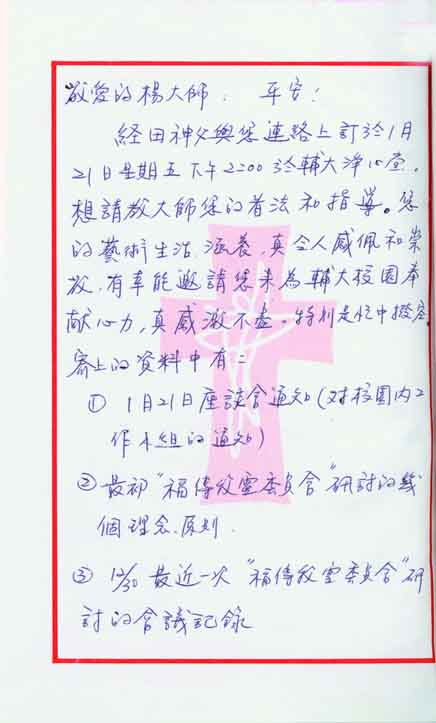 敬愛的楊大師: 平安!
經田神父與您連絡上訂於1月
21日星期五下午2:00於輔大淨心堂,
想請教大師您的看法和指導。您
的藝術生活、涵養、真令人感佩和崇
敬、有幸能邀請您来為輔大校園奉
献心力,真感激不盡。特別是忙中撥空
寄上的資料中有:
① 1月21日座談會通知(对校園内工
作小組的通知)
② 最初“福傳牧靈委員会”研討的幾
個理念、原則.
③ 12/30 最近一次“福傳牧靈委員会”研
討的会議記錄